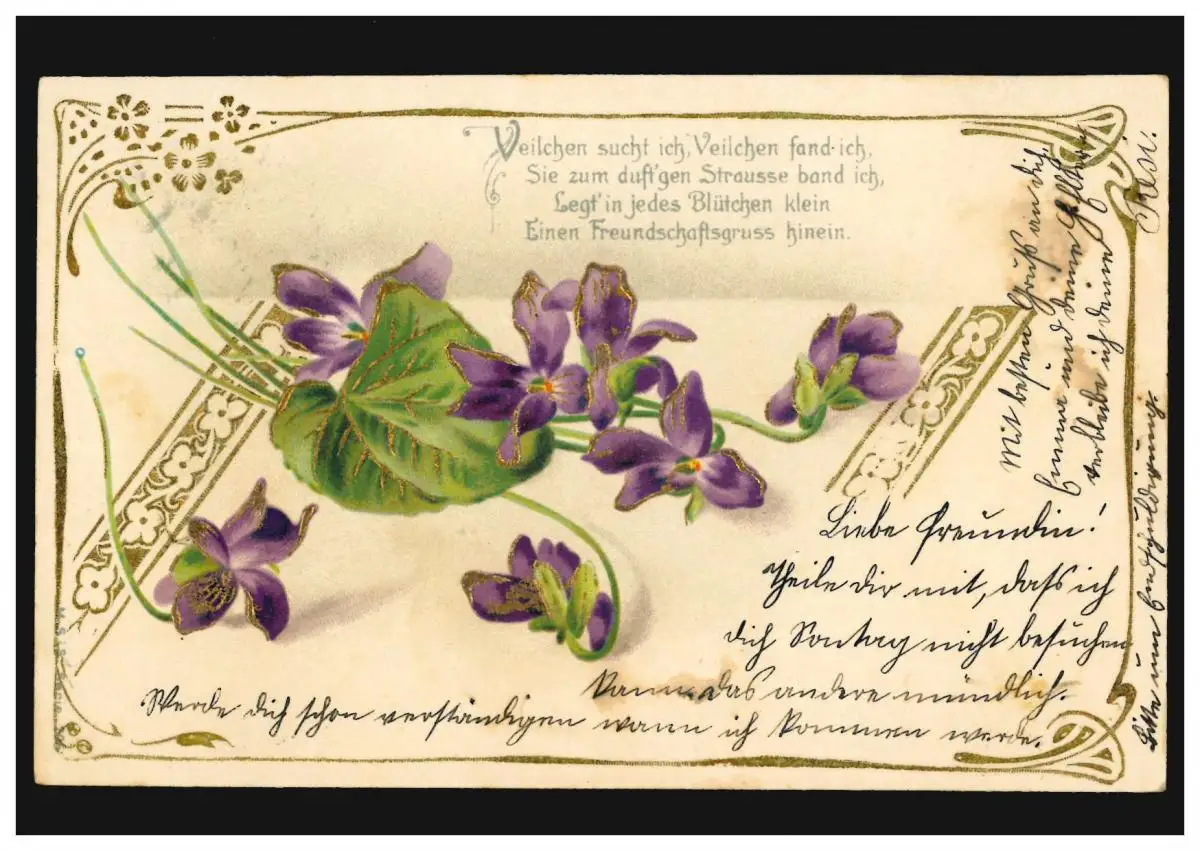 Veilchen sucht ich, Veilchen fand ich,
Sie zum duft'gen Strausse band ich,
Legt' in jedes Blütchen klein
Einen Freundschaftsgruss hinein.
Liebe Freundin!
Theile dir mit, daß ich
dich Sontag nicht besuchen
kann. das andere mündlich.
Werde dich schon verständigen wann ich kommen werde.
Mit besten Gruß an dich
und deine
verbleibe ich deine
Resi.
Bitte um Entschuldigung.